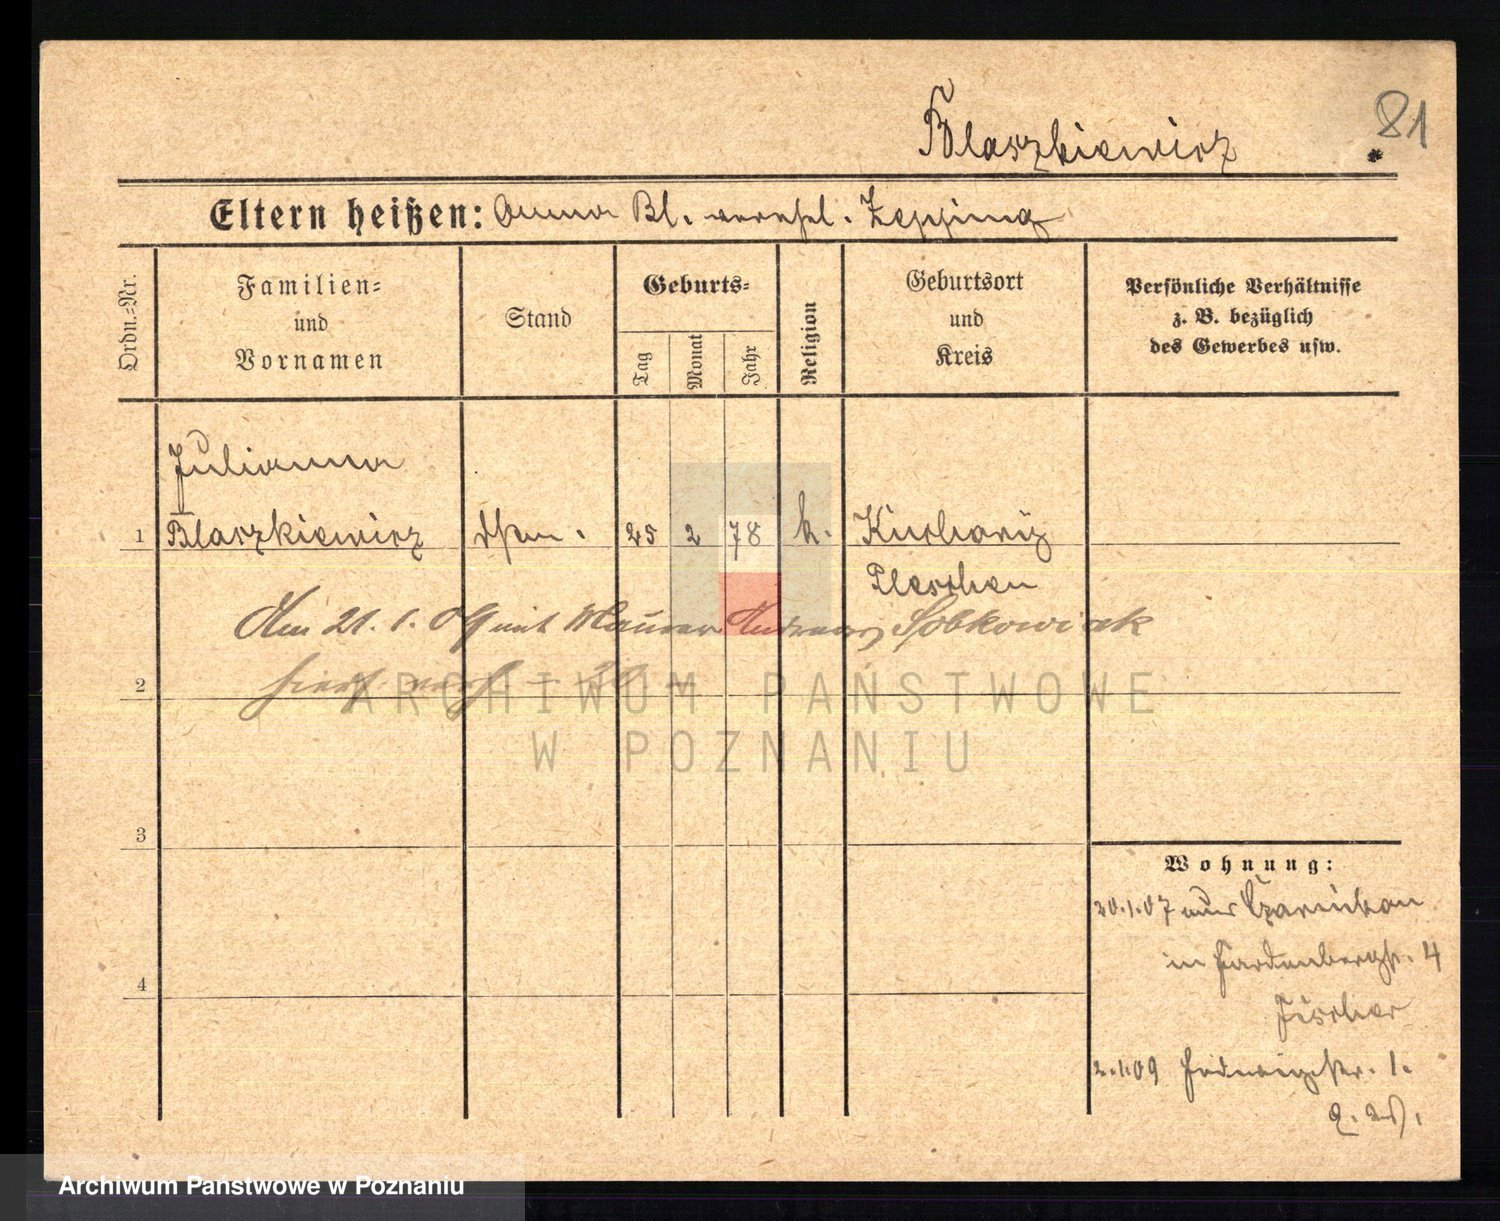 81
Blaszkiewicz
Eltern heißen: Anna Bl. verehl. Zepping
Ordn.-Nr.
Familien-
und
Vornamen
Stand
Geburts-
Tag
Monat
Jahr
Religion
Geburtsort
und
Kreis
Persönliche Verhältnisse
z. B. bezüglich
des Gewerbes usw.
Julianna
1 Blaszkiewicz 25 2 78 k. Kucharz
Pleschen
Am 21. 1. 09 mit Maurer Andreas Sobkowiak
2
ARCHIWUM PAŃSTWOWE
W POZNANIU
3
Wohnung:
20.1.07 aus Czarnikau
in Hardenbergstr. 4
Fischer
4
2.1.09 Hedwigstr. 1.
Archiwum Państwowe w Poznaniu